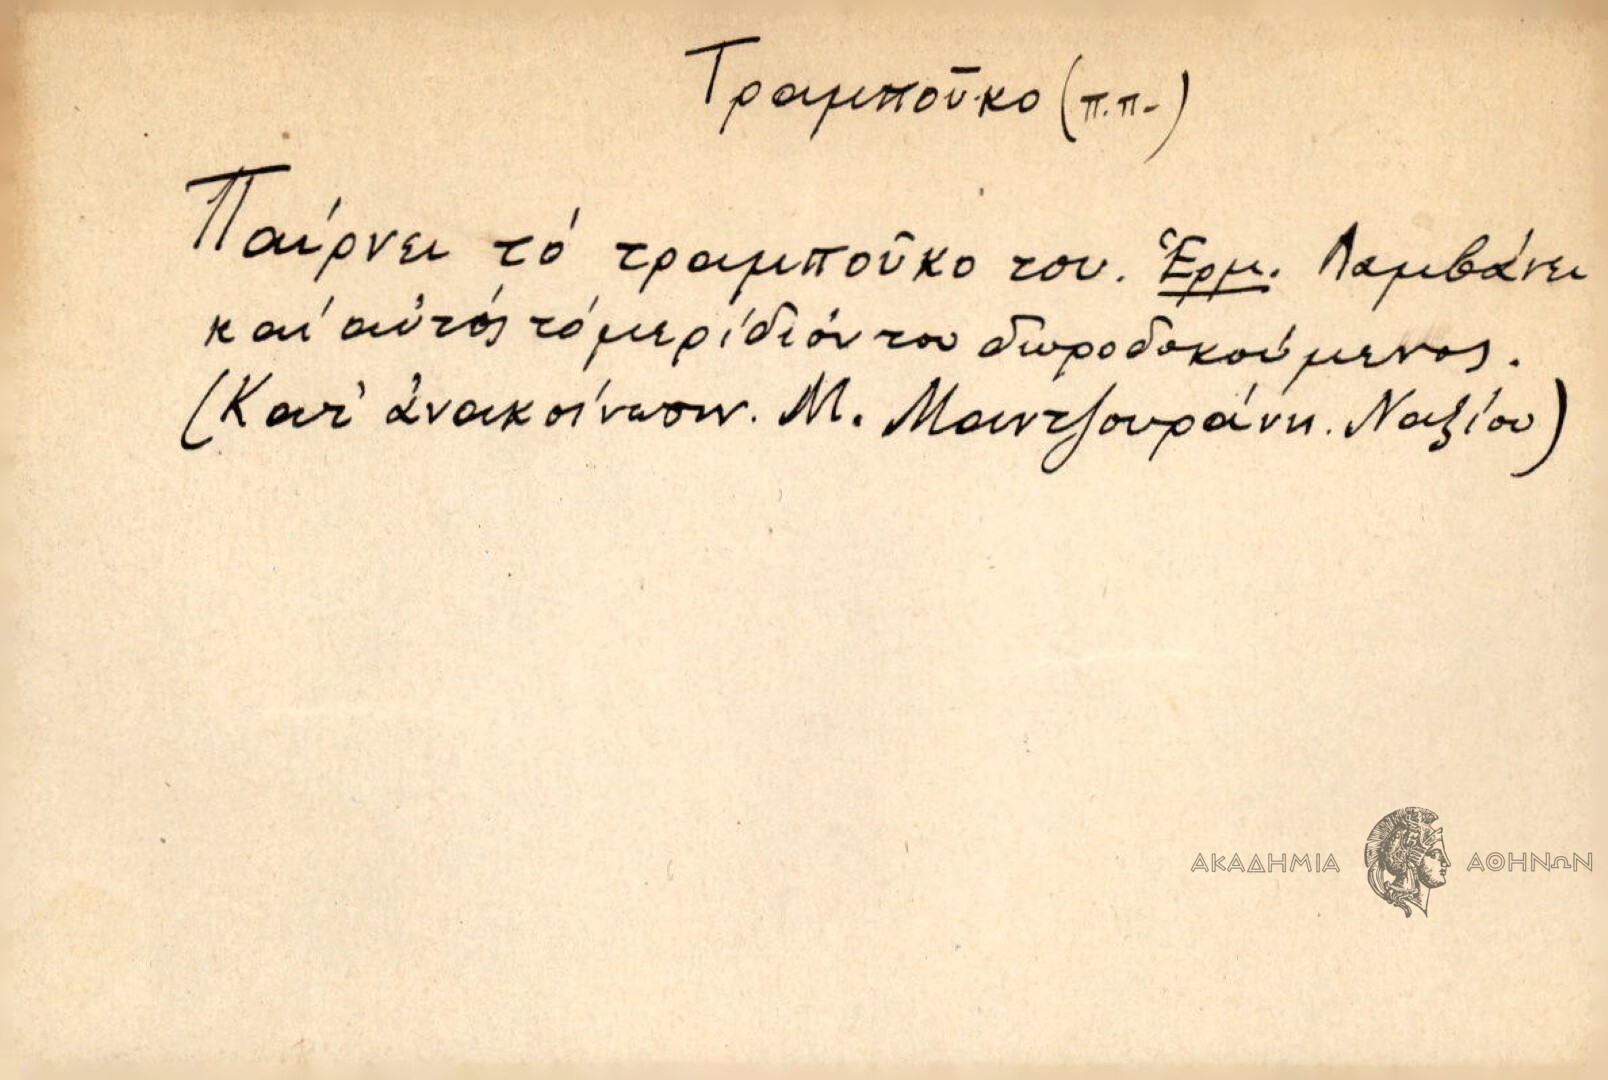 Τραμποῦκο (π.π.)
Παίρνει τό τραμποῦκο του. Ἑρμ. Λαμβάνει
καί αὐτός τό μερίδιόν του δωροδοκούμενος.
(Κατ' ἀνακοίνωσιν. Μ. Μαντζουράνη. Ναξίου)
ΑΚΑΔΗΜΙΑ ΑΘΗΝΩΝ